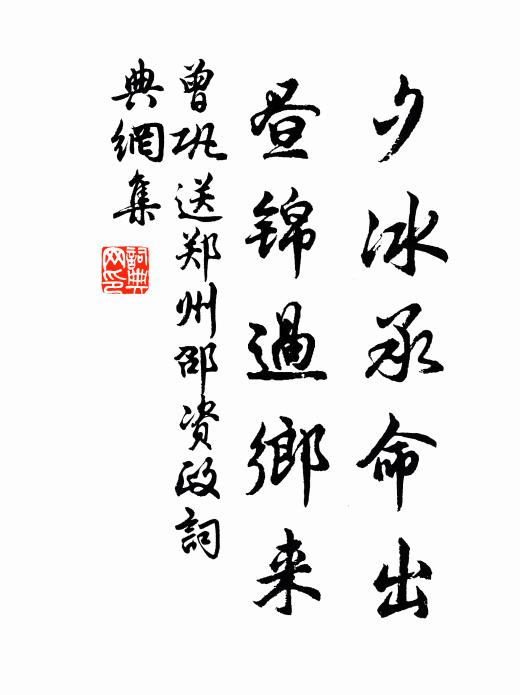 夕冰承命出
昼锦過鄉来
曾巩送郑州邵资政詞
典網集
詞典網印